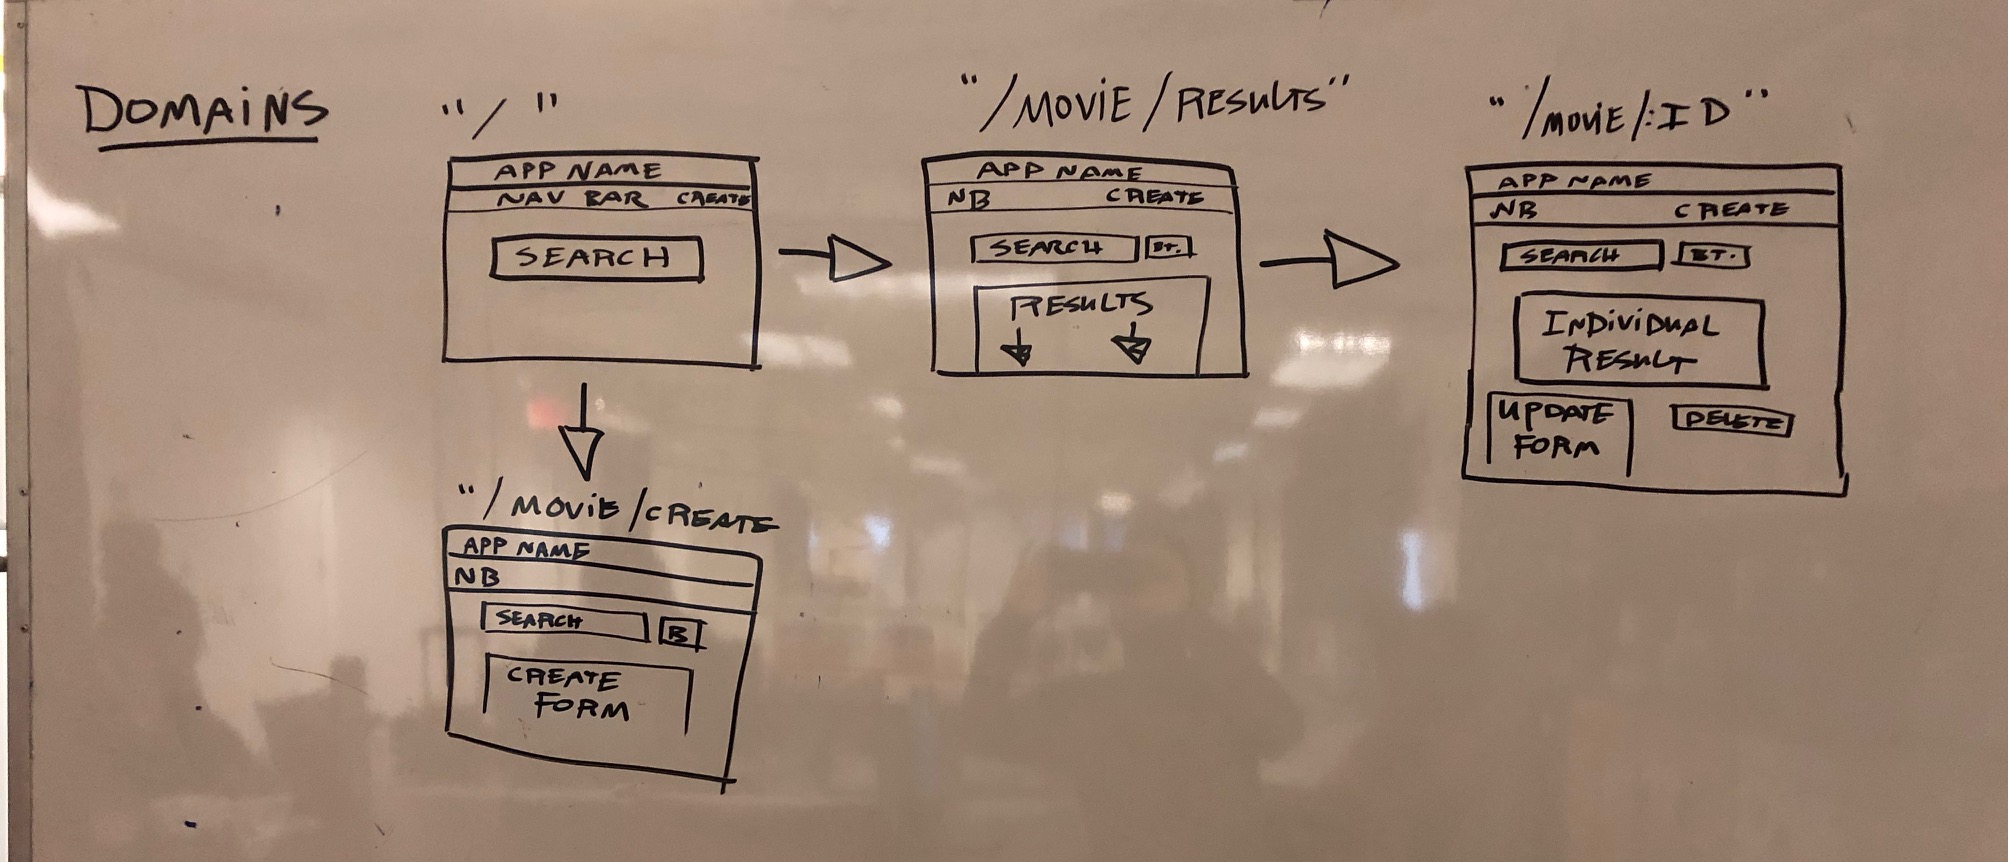 DOMAINS
"/"
APP NAME
NAV BAR CREATE
SEARCH
"/MOVIE/RESULTS"
APP NAME
NB CREATE
SEARCH BT.
RESULTS
"/MOVIE/:ID"
APP NAME
NB CREATE
SEARCH BT.
INDIVIDUAL
RESULT
UPDATE
FORM
DELETE
"/MOVIE/CREATE
APP NAME
NB
SEARCH B
CREATE
FORM